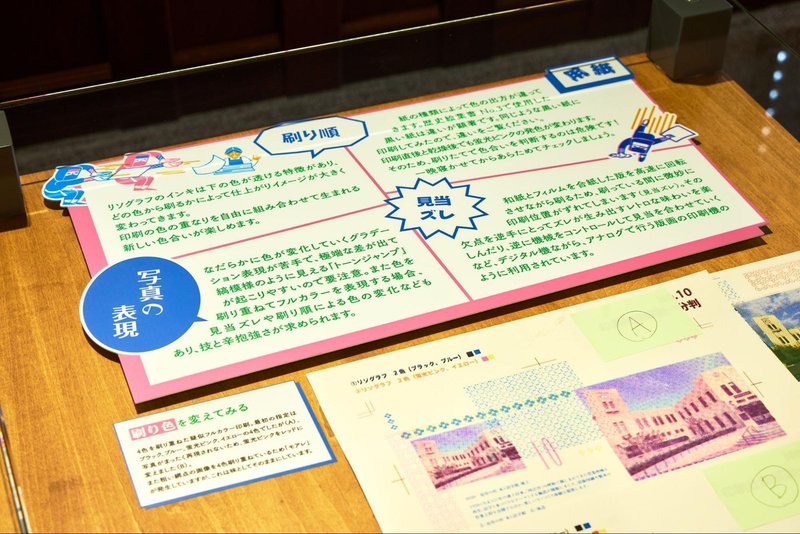 用紙
紙の種類によって色の出方が違って
きます。歴史絵葉書No.3で使用した
黒い紙は違いが顕著です。同じような黒い紙に
印刷してみたので、違いをご覧ください。
印刷直後と乾燥後でも蛍光ピンクの発色が変わります。
そのため、刷りたてで色合いを判断するのは危険です!
一晩寝かせてからあらためてチェックしましょう。
刷り順
リソグラフのインキは下の色が透ける特徴があり、
どの色から刷るかによって仕上がりイメージが大きく
変わってきます。
印刷の色の重なりを自由に組み合わせて生まれる
新しい色合いが楽しめます。
見当
ズレ
和紙とフィルムを合紙した版を高速に回転
させながら刷るため、刷っている際に微妙に
印刷位置がずれてしまいます(見当ズレ)。その
欠点を逆手にとってズレが生み出すレトロな味わいを楽
しんだり、逆に機械をコントロールして見当を合わせていく
など、デジタル機ながら、アナログで行う版画の印刷機の
ように利用されています。
写真の
表現
なだらかに色が変化していくグラデー
ション表現が苦手で、極端な差が出て
縞模様のように見える「トーンジャンプ」
が起こりやすいので要注意。また色を
刷り重ねてフルカラーを表現する場合、
見当ズレや刷り順による色の変化なども
あり、技と辛抱強さが求められます。
刷り色を変えてみる
4色を刷り重ねた疑似フルカラー印刷。最初の指定は
ブラック、ブルー、蛍光ピンク、イエローの4色でしたが(A)、
写真がまったく再現されないため、蛍光ピンクをレッドに
変えました(B)。
また粗い網点の画像を4色刷り重ねているため「モアレ」
が発生していますが、これは味としてそのままにしています。
.10
判
①リソグラフ 2色(ブラック、ブルー)
②リソグラフ 2色(蛍光ピンク、イエロー)
A
B